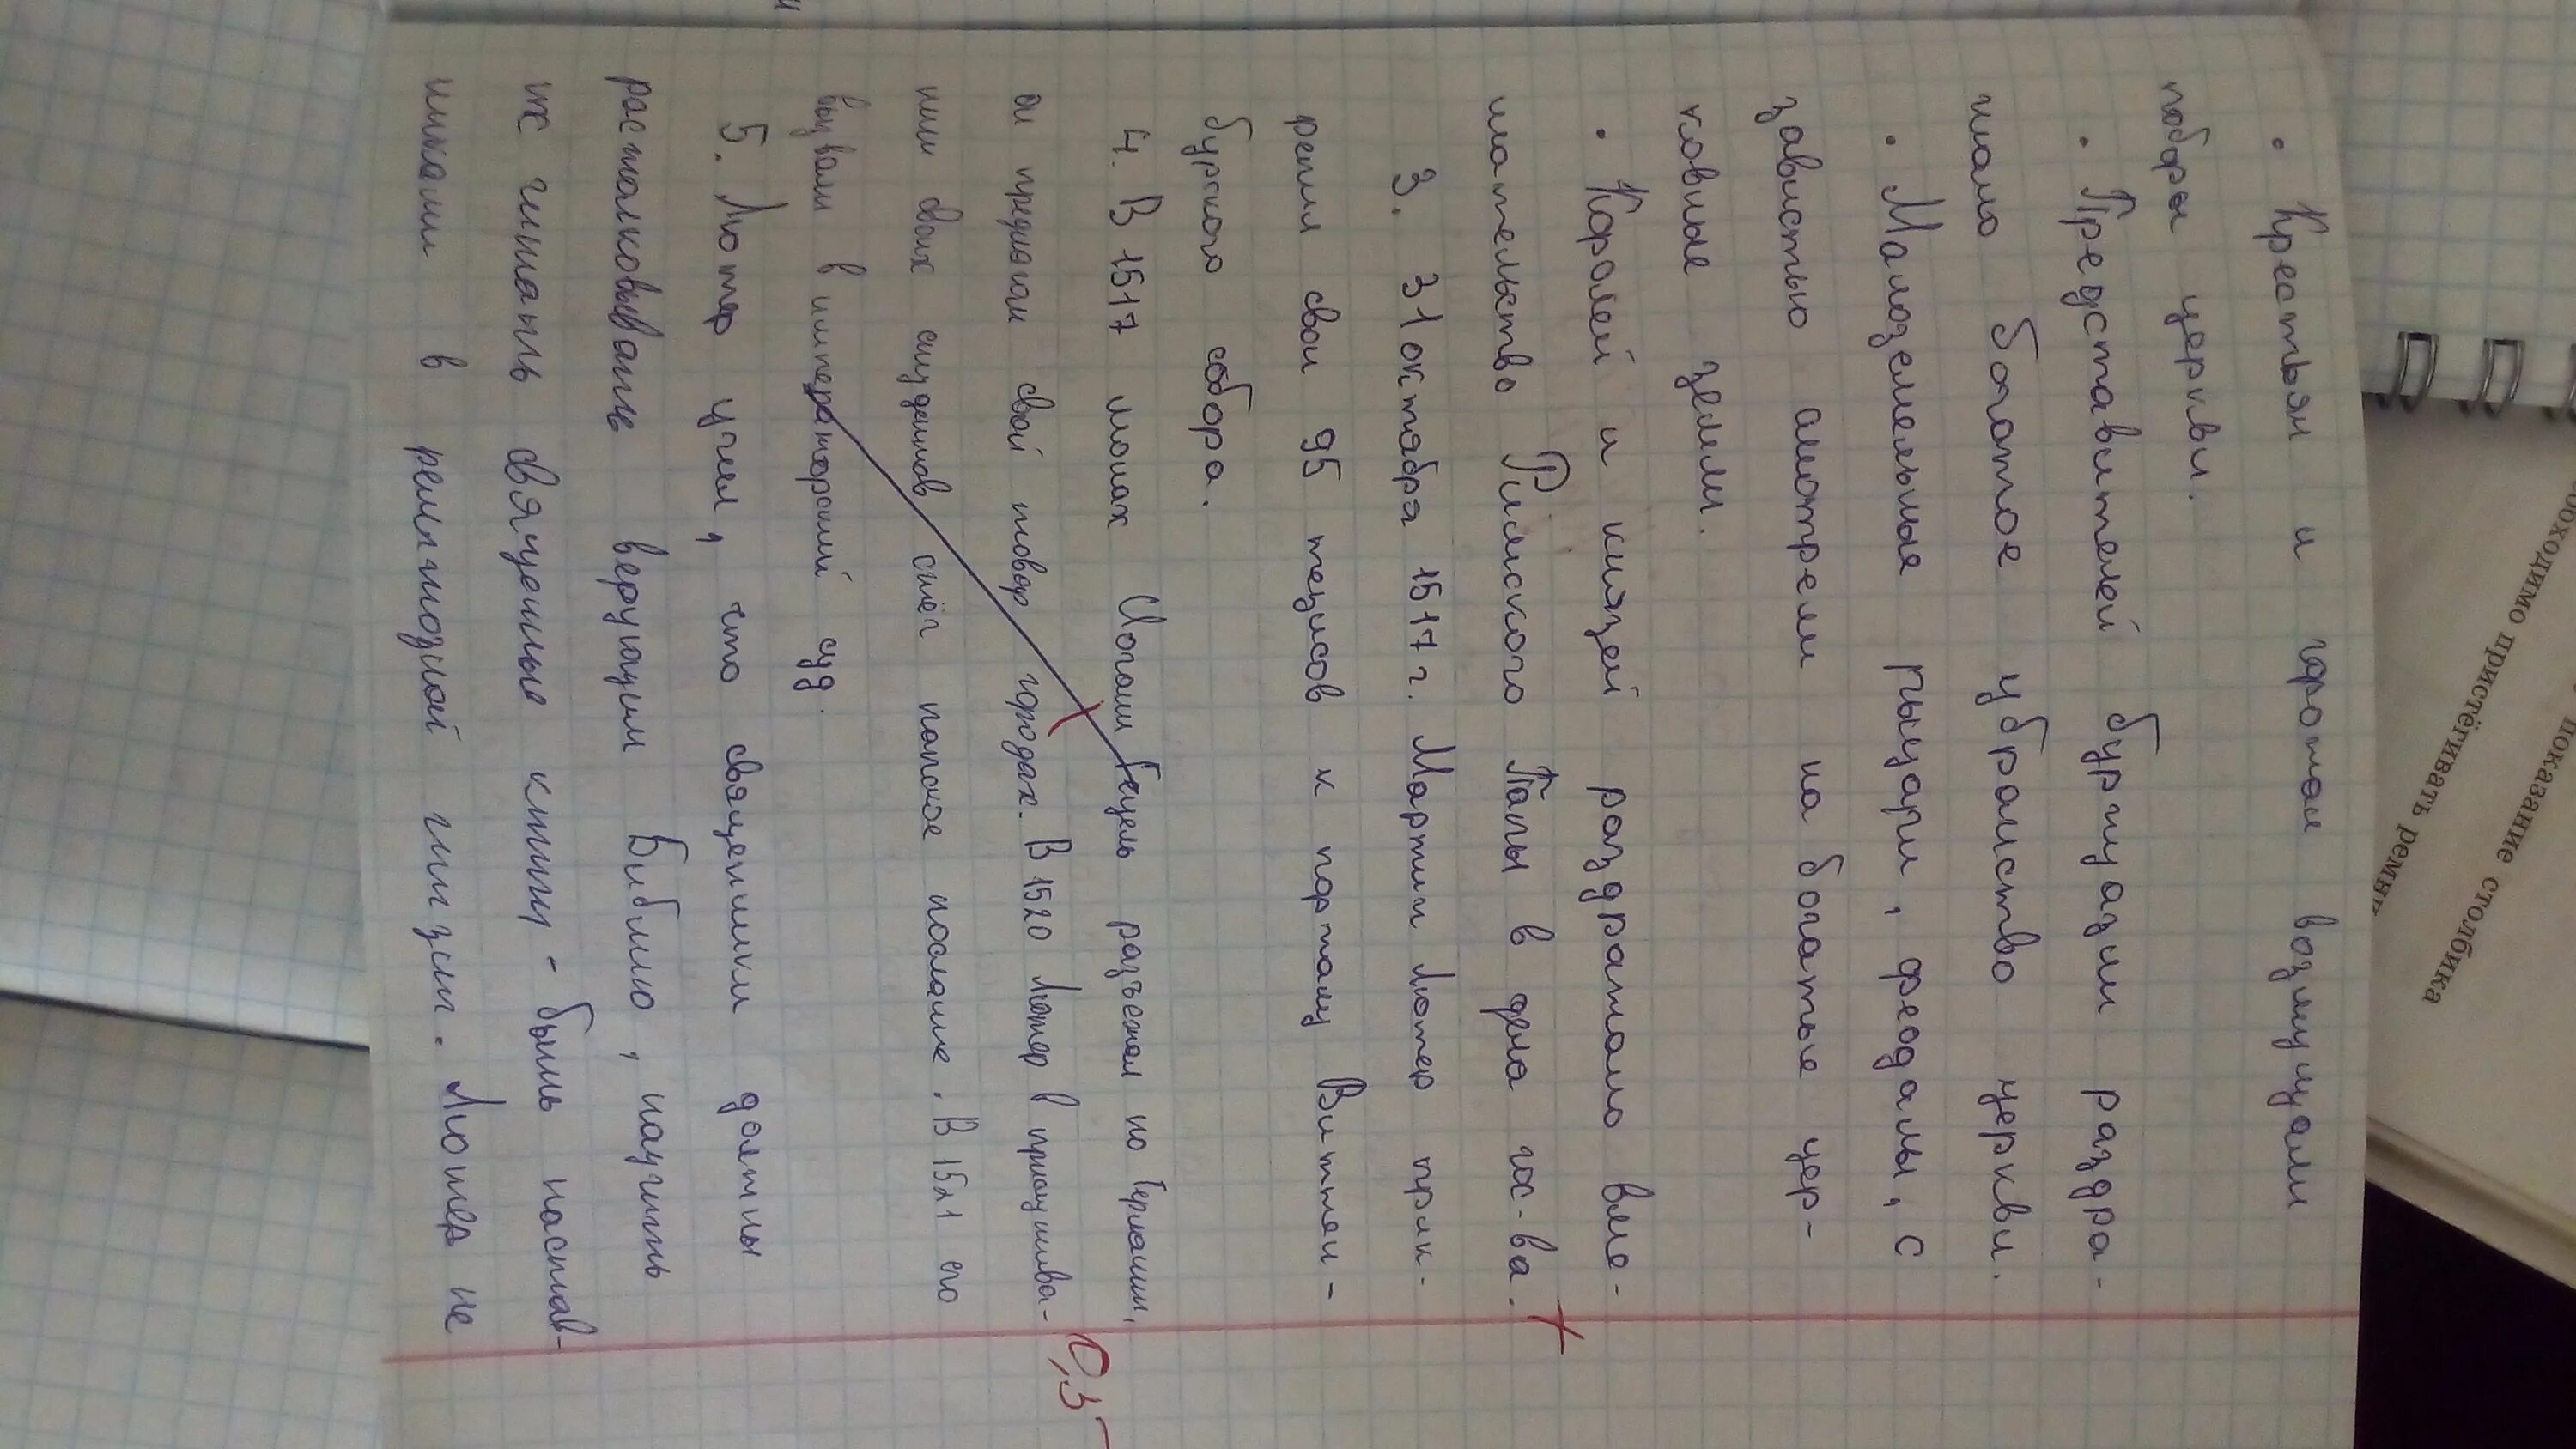 • Крестьян и горожан возмущали
поборы церкви.
• Представителей буржуазии раздра-
жало богатое убранство церкви.
• Малоземельные рыцари, феодалы, с
завистью смотрели на богатые цер-
ковные земли.
• Королей и князей раздражало вме-
шательство Римского Папы в дела гос-ва.
3. 31 октября 1517 г. Мартин Лютер прик-
репил свои 95 тезисов к порталу Виттен-
бурского собора.
4. В 1517 монах Иоганн Тецель разъезжал по Германии,
и предлагал свой товар городах. В 1520 Лютер в присутсв-
нии своих студентов сжёг папское послание. В 1521 его
вызвали в императорский суд.
0,5
5. Лютер учил, что священники должны
растолковывать верующим Библию, научить
их читать священные книги - быть настав-
никами в религиозной жизни. Лютер не
обходимо пристёгивать ремни
показание столбика